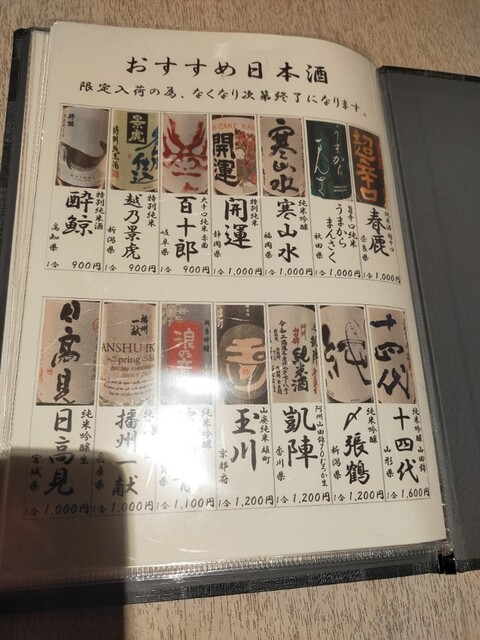 おすすめ日本酒
限定入荷の為、なくなり次第終了になります。
超辛口
春鹿
奈良県
1合 1,000円
うまから
まんさく
秋田県
1合 1,000円
寒山水
純米吟醸
寒山水
福岡県
1合 1,000円
開運
特別純米
開運
静岡県
1合 1,000円
大辛口純米
百十郎
岐阜県
1合 900円
景虎
特別純米
越乃景虎
新潟県
1合 900円
酔鯨
特別純米酒
酔鯨
高知県
1合 900円
十四代
純米吟醸 山田錦
十四代
山形県
1合 1,600円
純
純米吟醸
〆張鶴
新潟県
1合 1,200円
純米酒
凱陣
香川県
1合 1,200円
玉川
山廃純米雄町
玉川
京都府
1合 1,200円
浪の音
1,100円
播州一献
播州一献
1合 1,000円
日高見
純米吟醸生
日高見
宮城県
1合 1,000円